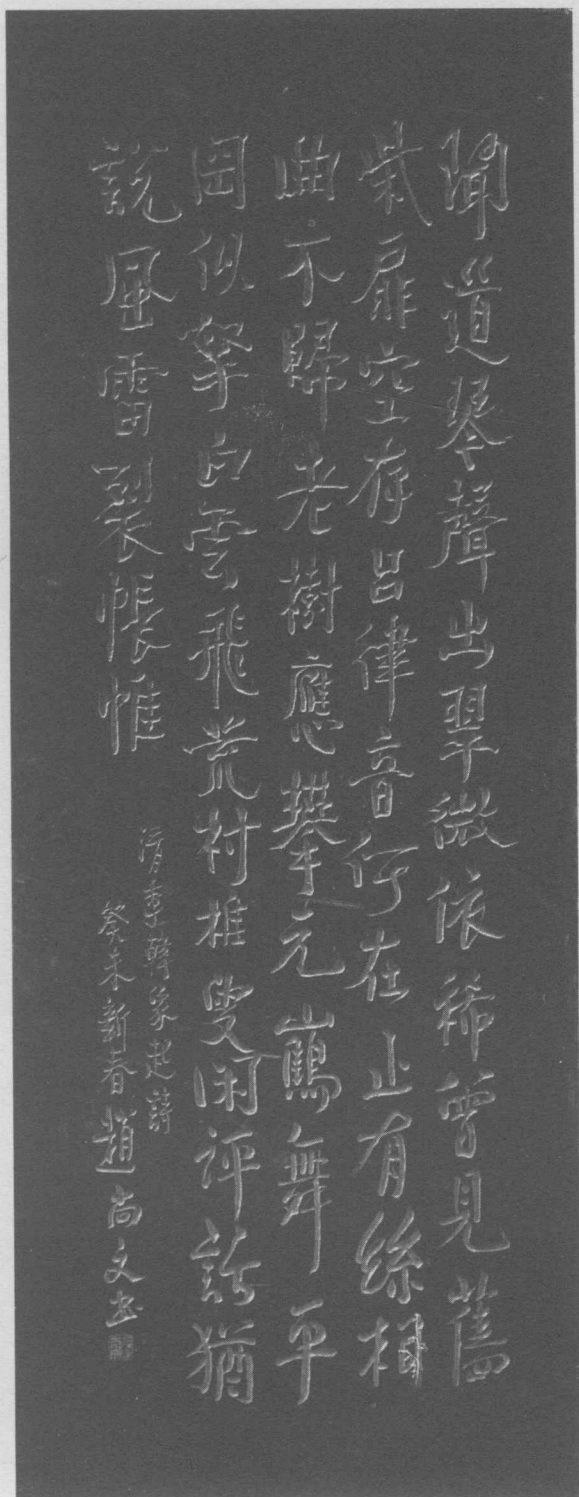 聞道琴聲出翠微依稀曾見舊
柴扉空存呂律音何在止有絲桐
曲不歸老樹應攀元鶴舞平
岡似擎白雲飛荒村樵叟閑評訪猶
說風雷裂帳惟
清李韓象起詩
癸未新春趙尚文書